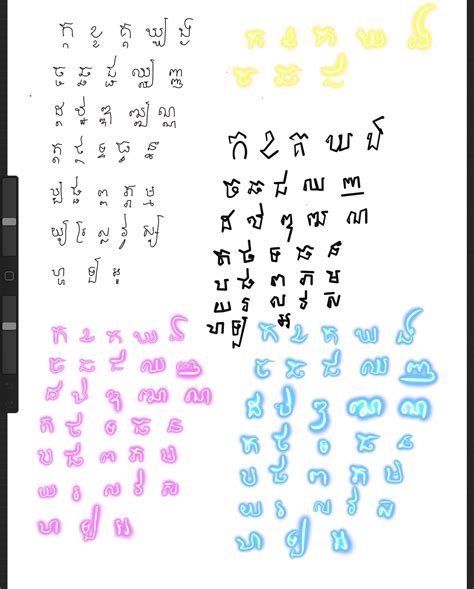 ក្ក ខ្ខ គ្គ ឃ្ឃ ង្ង
ច្ច ឆ្ឆ ជ្ជ ឈ្ឈ ញ្ញ
ដ្ដ ឋ្ឋ ឌ្ឌ ឍ្ឍ ណ្ណ
ត្ត ថ្ថ ទ្ទ ធ្ធ ន្ន
ប្ប ផ្ផ ព្ព ភ្ភ ម្ម
យ្យ រ្រ ល្ល វ្វ ស្ស
ហ្ហ ឡ អ្អ
ក ខ គ ឃ ង
ច ឆ ជ
ក ខ គ ឃ ង
ច ឆ ជ ឈ ញ
ដ ឋ ឌ ឍ ណ
ត ថ ទ ធ ន
ប ផ ព ភ ម
យ រ ល វ ស
ហ ឡ អ
ក ខ គ ឃ ង
ច ឆ ជ ឈ ញ
ដ ឋ ឌ ឍ ណ
ត ថ ទ ធ ន
ប ផ ព ភ ម
យ រ ល វ ស
ហ ឡ អ
ក ខ គ ឃ ង
ច ឆ ជ ឈ ញ
ដ ឋ ឌ ឍ ណ
ត ថ ទ ធ ន
ប ផ ព ភ ម
យ រ ល វ ស
ហ ឡ អ